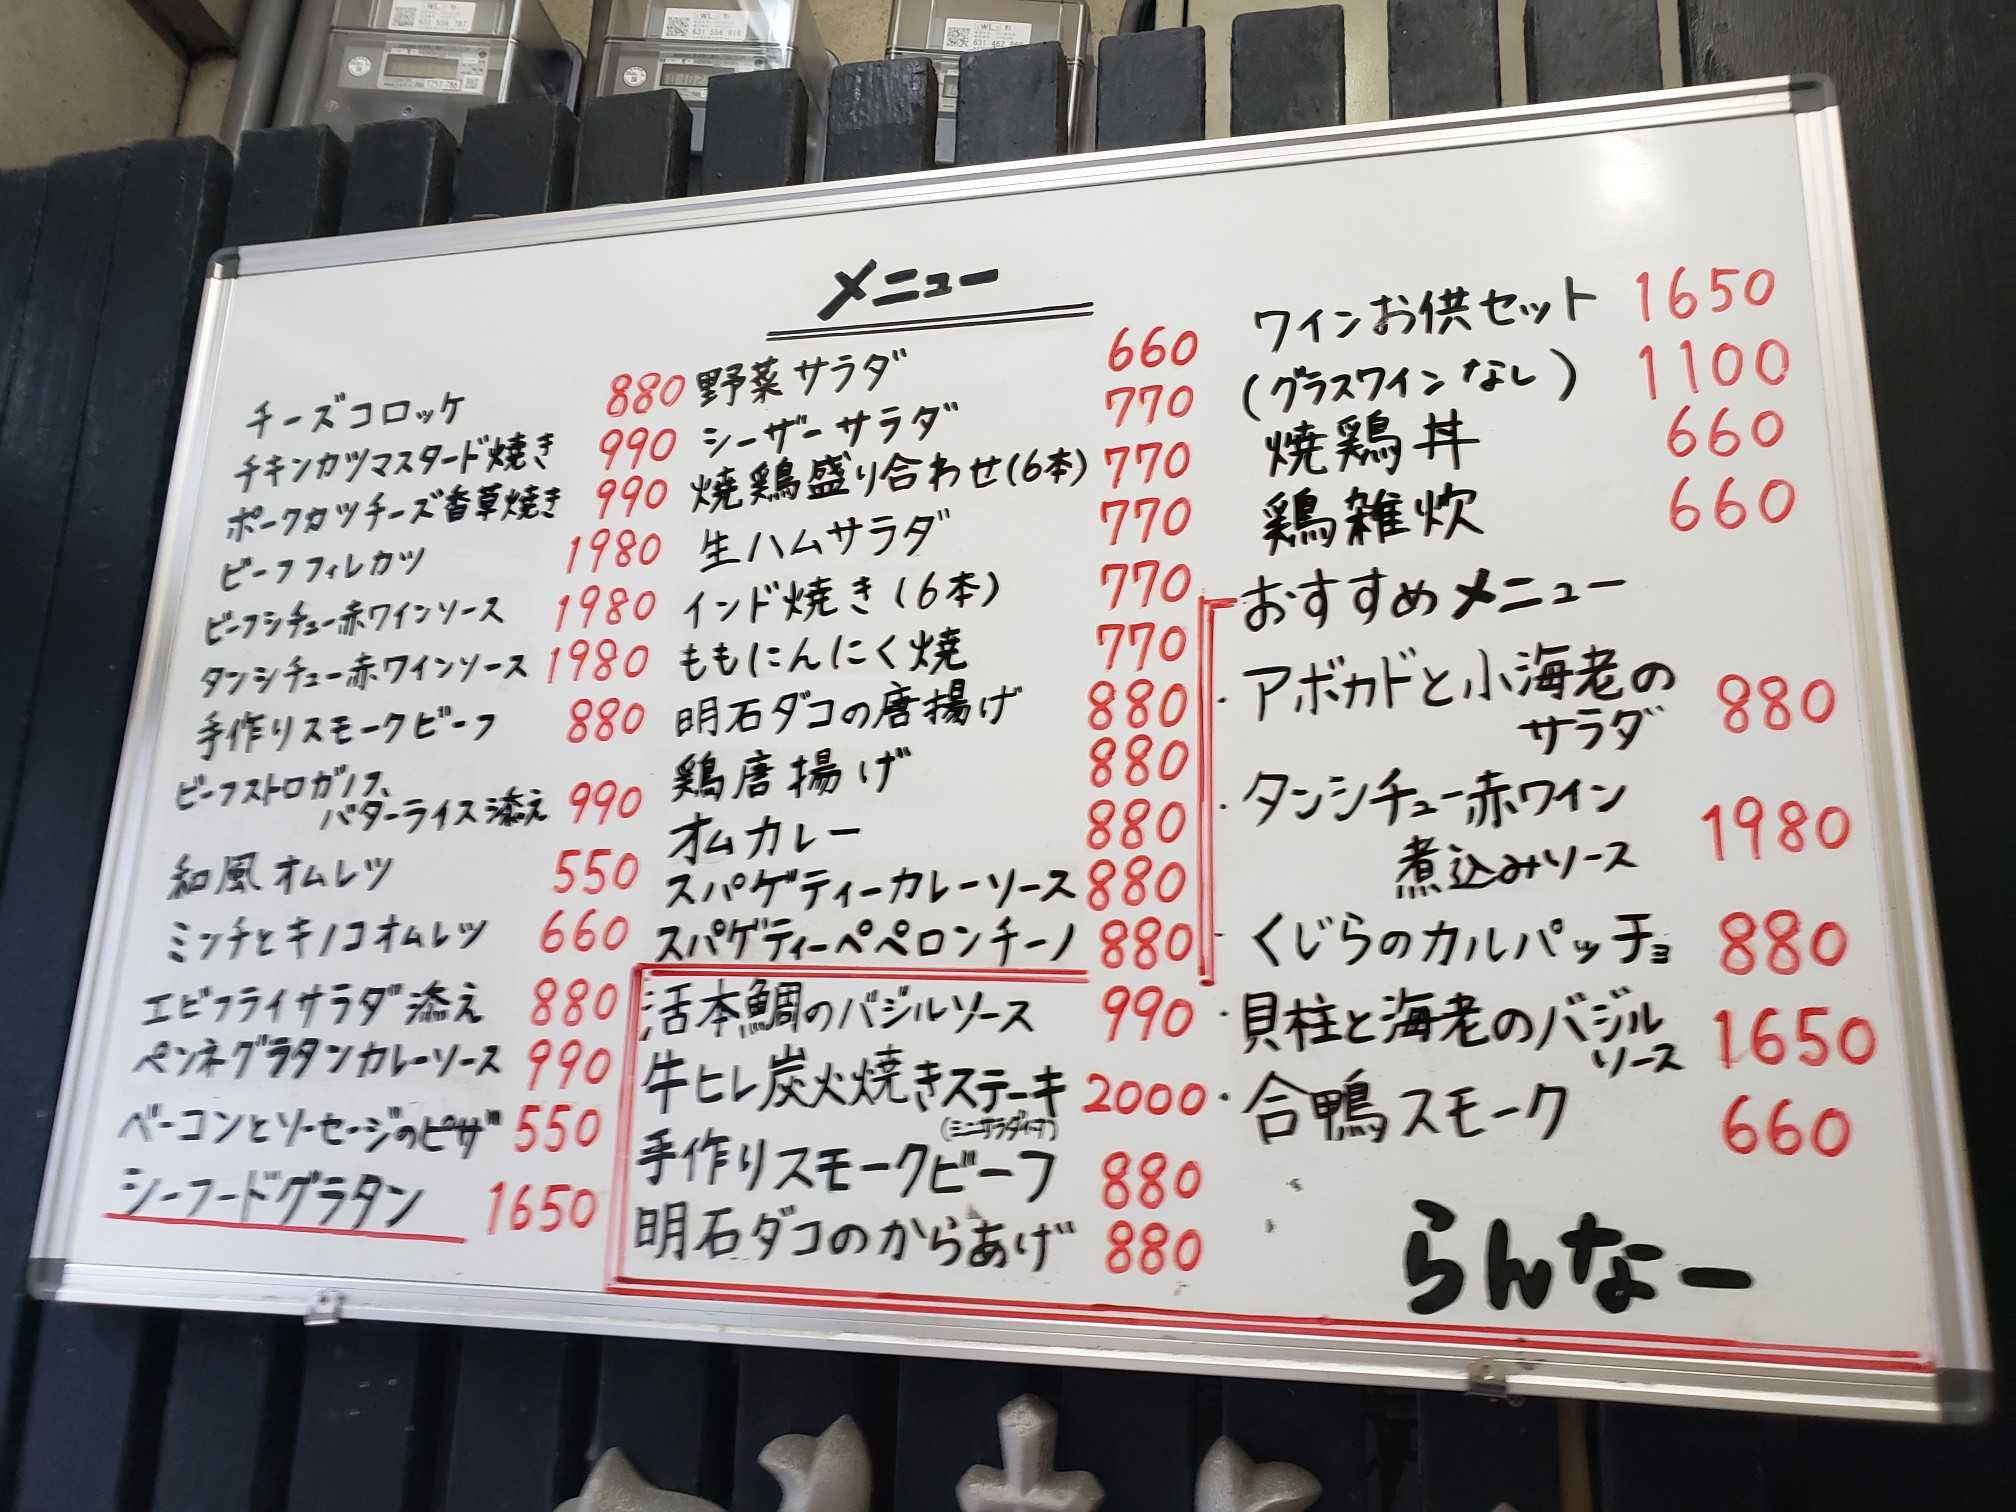 メニュー
チーズコロッケ 880
チキンカツマスタード焼き 990
ポークカツチーズ香草焼き 990
ビーフフィレカツ 1980
ビーフシチュー赤ワインソース 1980
タンシチュー赤ワインソース 1980
手作りスモークビーフ 880
ビーフストロガノフ、
バターライス添え 990
和風オムレツ 550
ミンチとキノコオムレツ 660
エビフライサラダ添え 880
ペンネグラタンカレーソース 990
ベーコンとソーセージのピザ 550
シーフードグラタン 1650
野菜サラダ 660
シーザーサラダ 770
焼鶏盛り合わせ(6本) 770
生ハムサラダ 770
インド焼き(6本) 770
ももにんにく焼 770
明石ダコの唐揚げ 880
鶏唐揚げ 880
オムカレー 880
スパゲティーカレーソース 880
スパゲティーペペロンチーノ 880
活本鯛のバジルソース 990
牛ヒレ炭火焼きステーキ 2000
(ミニサラダ付)
手作りスモークビーフ 880
明石ダコのからあげ 880
ワインお供セット 1650
(グラスワインなし) 1100
焼鶏丼 660
鶏雑炊 660
おすすめメニュー
・アボカドと小海老の
サラダ 880
・タンシチュー赤ワイン
煮込みソース 1980
・くじらのカルパッチョ 880
・貝柱と海老のバジル
ソース 1650
・合鴨スモーク 660
らんなー